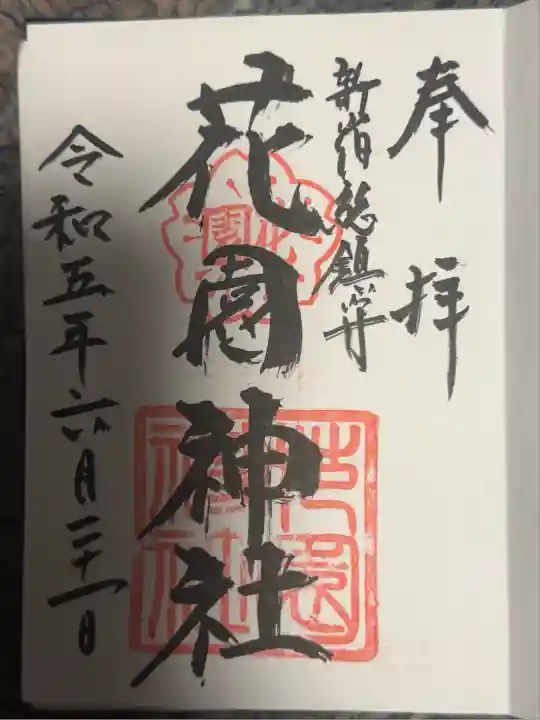 奉拝
新宿総鎮守
花園神社
令和五年六月二十一日
花園神社